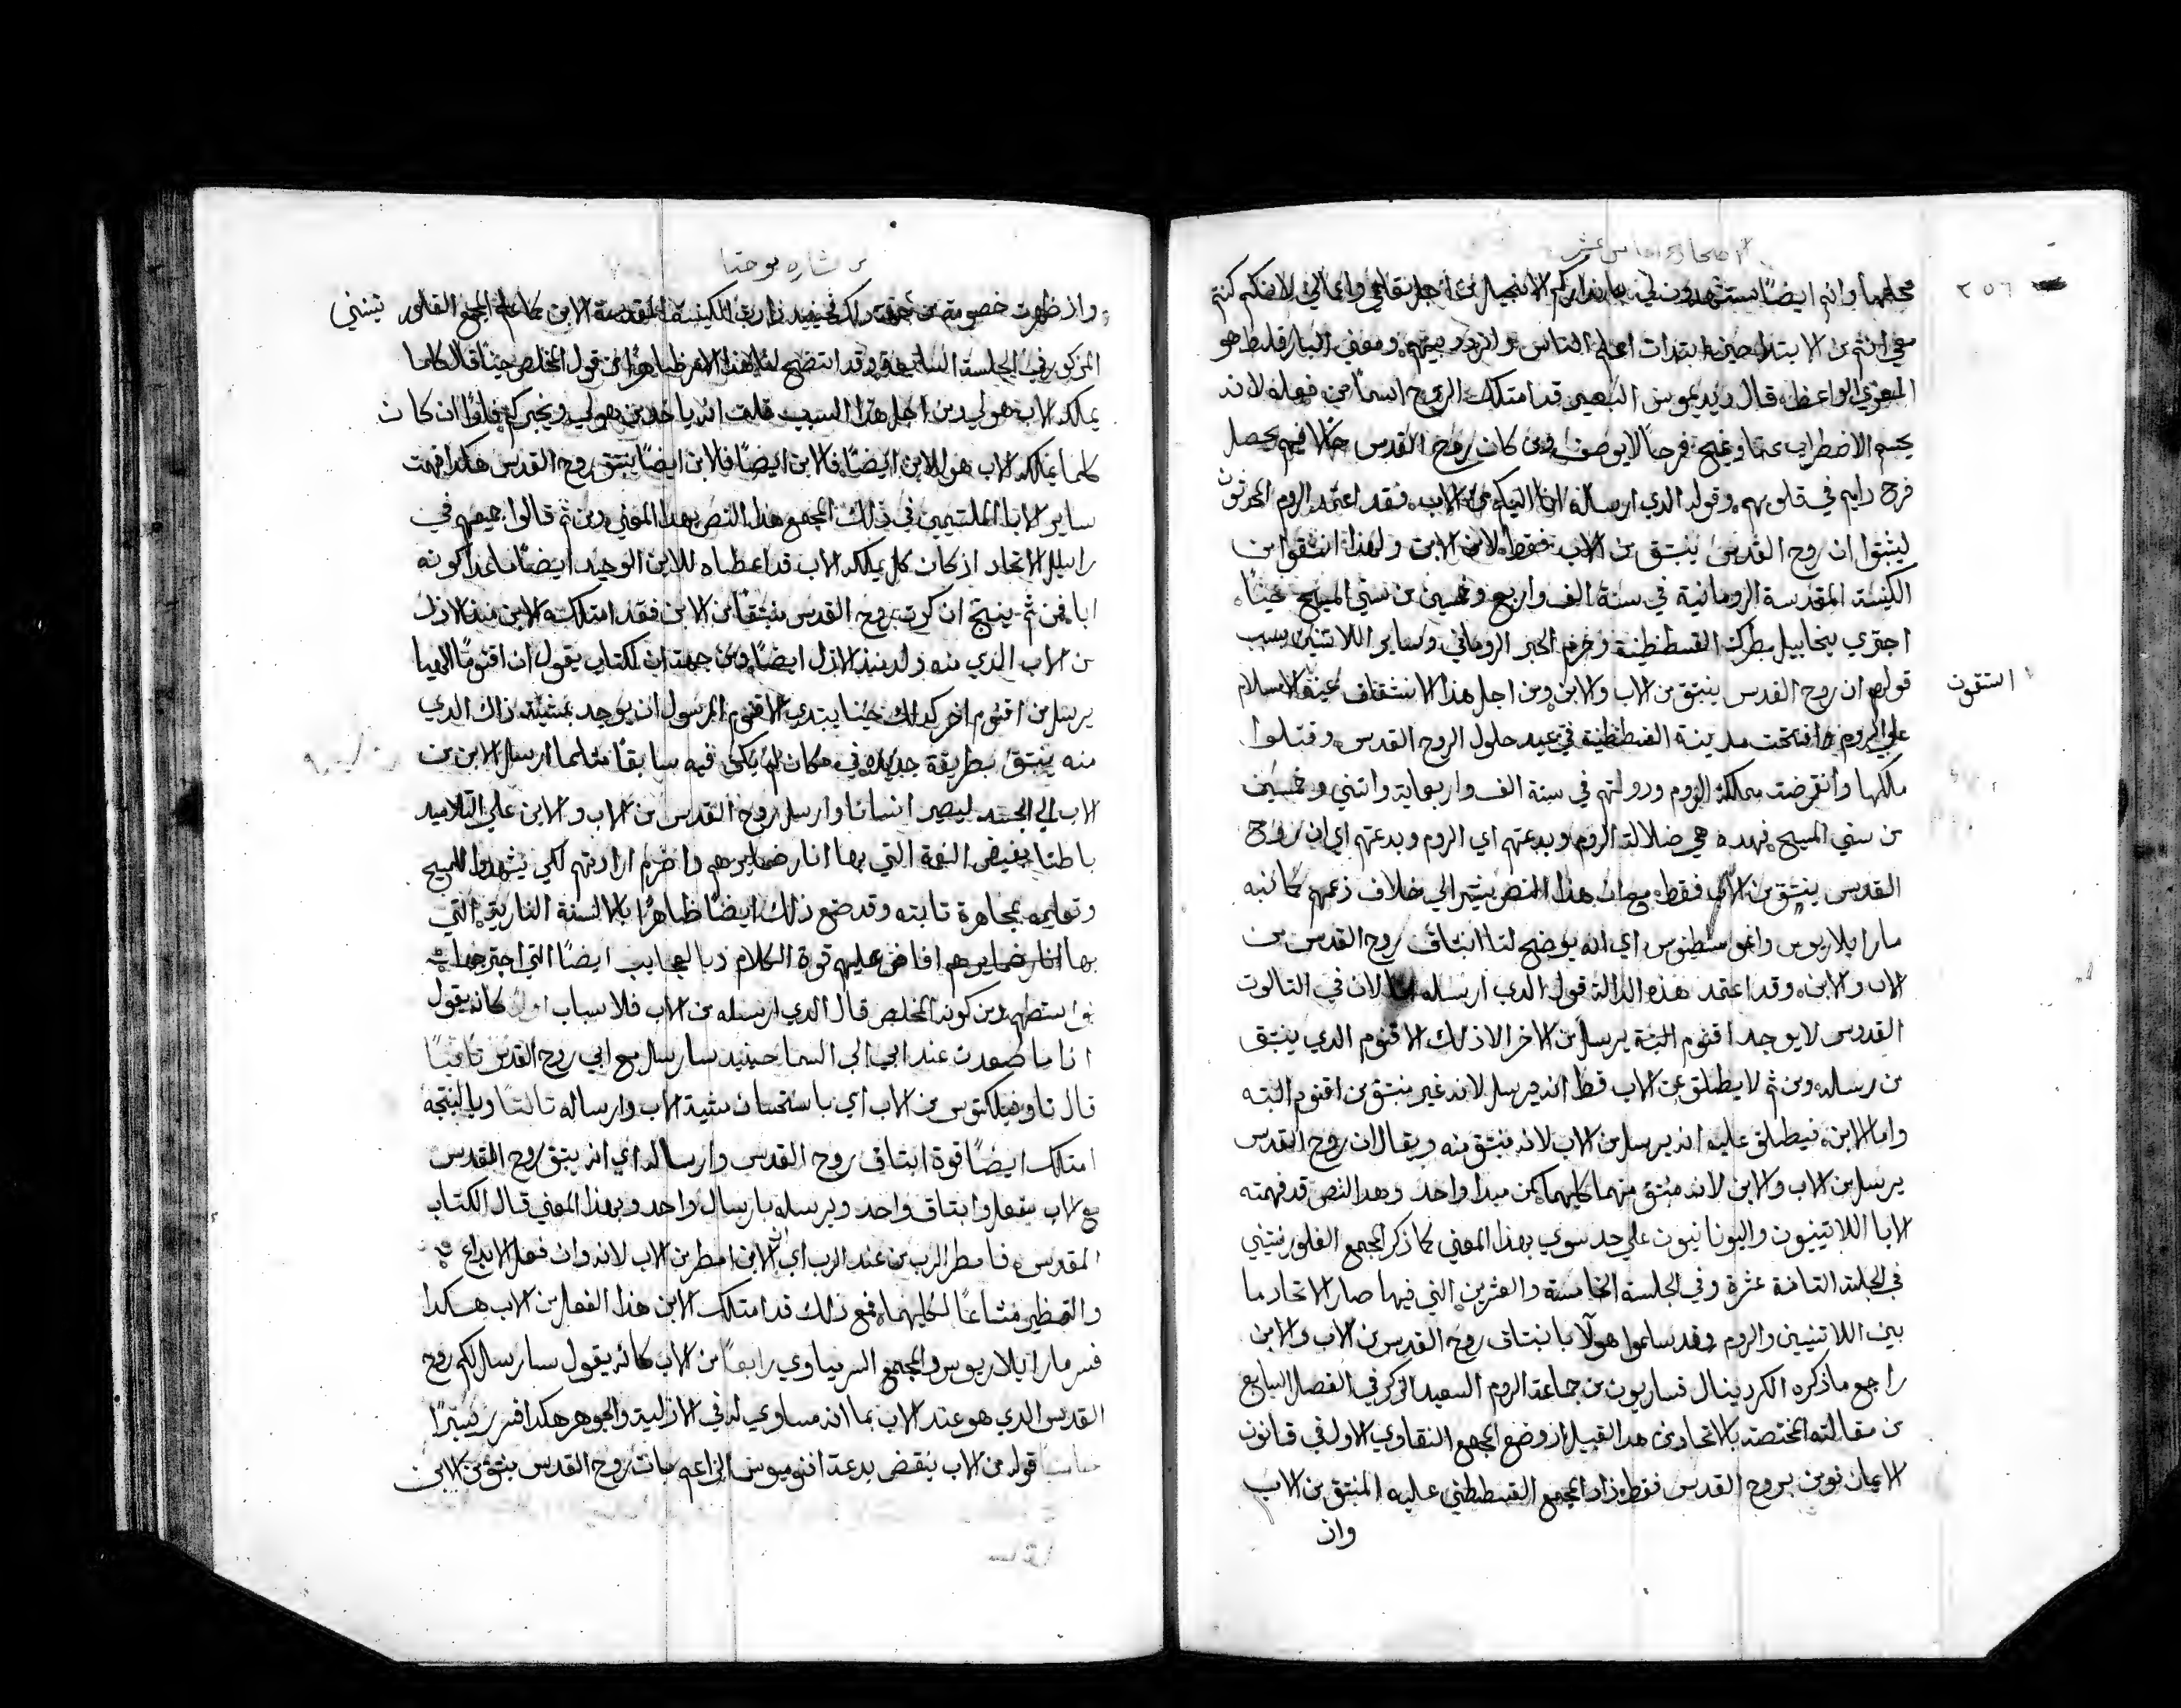 الاصحاح الخامس عشر
٢٥٦
محلها وانتم ايضًا تستشهدون لي بانداركم الانجيل من اجل تعاليمي واعمالي لانكم كنتم
معي انتم من الابتدا حين ابتدات اعلم الناس ومعني البارقليط هو
المعزي الواعظ قال ديديموس البصير قد امتلك الروح اسمًا من فعله لانه
يحسم الاضطراب عنا ويمنح فرحًا لا يوصف ومن كان روح القدس حالا فيهم يحصل
فرح دايم في قلوبهم وقوله الدي ارسله انا اليكم من الاب فقد اعتمد الروم
ليثبتوا ان روح القدس ينبثق من الاب فقط لا من الابن ولهذا انشقوا من
الكنيسة المقدسة الرومانية في سنة الف واربع وخمسين من سني المسيح حيثما
اجتري ميخاييل بطرك القسطنطينية وحرم الحبر الروماني وساير اللاتنيين بسبب
قولهم ان روح القدس ينبثق من الاب والابن ومن اجل هذا الانشقاف الاسلام
انشقوت
علي الروم وافتتحت مدينة القسطنطنية في عيد حلول الروح القدس وقتلوا
ملكها وانقرضت مملكة الروم ودولتهم في سنة الف واربعماية واتني وخمسين
من سني المسيح فهده هي ضلالة الروم وبدعتهم اي الروم وبدعتهم اي ان روح
القدس ينبثق من الاب فقط مع ان هذا النص يشير الي خلاف زعمهم كما نبه
مار ايلاريوس واغوسطنوس اي انه يوضح لنا انبثاق روح القدس من
الاب والابن وقد اعتمد هذه الدالة قول الدي ارسله انا لان في التالوت
القدوس لا يوجد اقنوم البتة يرسل من الاخر الا ذلك الاقنوم الدي ينبثق
من رسله ومن ثم لا يطلق عن الاب قط انه يرسل لانه غير منبثق من اقنوم البته
واما الابن فيطلق عليه انه يرسل من الاب لانه منبثق منه ويقال ان روح القدس
يرسل من الاب والابن لانه منبثق منهما كليهما كمن مبدا واحد وهدا النص قد فهمته
الابا اللاتينيون واليونانيون علي حد سوي بهذا المعني كما ذكر المجمع الفلورنتيني
في الجلسة التامنة عشرة وفي الجلسة الخامسة والعشرين التي فيها صار الاتحاد ما
بين اللاتنيين والروم وقد سلموا هولا بانبتاق روح القدس من الاب والابن
راجع ما ذكره الكردينال بساريون من جماعة الروم السعيد الذكر في الفصل السابع
من مقالته المختصة بالاتحاد من هدا القبيل اذ وضع المجمع النقاوي الاول في قانون
الايمان نومن بروح القدس فقط زاد المجمع القسطنطني عليه المنبثق من الاب
وان
بشاره يوحنا
واذ ظهرت خصومة من جهة ذلك فحينيد زادت الكنيسة المقدسة الابن كما علم المجمع الفلورتنيني
المزكور في الجلسة السابعة وقد اتضح لنا هذا الامر ظاهرًا من قول المخلص حيثما قال كلما
يملكه الاب هو لي ومن اجل هذا السبب قلت انه ياخد من هو لي ويخبركم فلو ان كان
كلما يملكه الاب هو للابن ايضًا فالابن ايضًا ينبثق روح القدس هكدا فهمت
ساير الابا الملتيمين في ذلك المجمع هدا النص بهدا المعني ومن ثم قالوا جميعهم في
راسيل الاتحاد اذ كان كل يملكه الاب قد اعطاه للابن الوحيد ايضًا ما عدا كونه
ابا فمن ثم ينتج ان كون روح القدس منبثقًا من الابن فقد امتلكه الابن منذ الازل
من الاب الدي منه ولد منذ الازل ايضًا ومن جهة ان الكتاب يقول ان اقنومًا الهيا
يرسل من اقنوم اخر كدلك حيثما يبتدي الاقنوم المرسول ان يوجد بمشية ذاك الدي
منه ينبثق بطريقة جديده في مكان لم يكن فيه سابقًا مثلما ارسل الابن من
الاب الي الجسد ليصير انسانا وارسل روح القدس من الاب والابن علي التلاميد
باطنا بفيض النعمة التي بها انار ضمايرهم واضرم ارادتهم لكي يشهدوا للمسيح
وتعليمه بمجاهرة تابته وقد صنع ذلك ايضًا ظاهرًا بالالسنة النارية التي
بها انار ضمايرهم افاض عليهم قوة الكلام وبالعجايب ايضًا التي اجترحها
بواسطتهم ومن كون المخلص قال الدي ارسله من الاب فلاسباب اولا كانه يقول
انا ما صعدت عند ابي الي السما حينيد سارسل مع ابي روح القدس تانيًا
قال تاوفيلكتوس من الاب اي باستحسان مشية الاب وارساله تالتًا وبالنتيجة
امتلك ايضًا قوة ابتاق روح القدس وارساله اي انه يبتق روح القدس
مع الاب بفعل وابتاق واحد ويرسله بارسال واحد وبهذا المعني قال الكتاب
المقدس فامطر الرب من عند الرب اي ان الابن امطر من الاب لانه وان فعل الابداع
والتمطير مشاعًا لكليهما فمع ذلك قد امتلك الابن هذا الفعل من الاب هكدا
فسر مار ايلاريوس والمجمع السرمياوي رابعًا من الاب كانه يقول سارسل لكم روح
القدس الدي هو عند الاب بما انه مساوي له في الازلية والجوهر هكدا فسر
خامسا قوله من الاب ينقض بدعة افنوميوس الزاعم بان روح القدس ينبثق من الابن